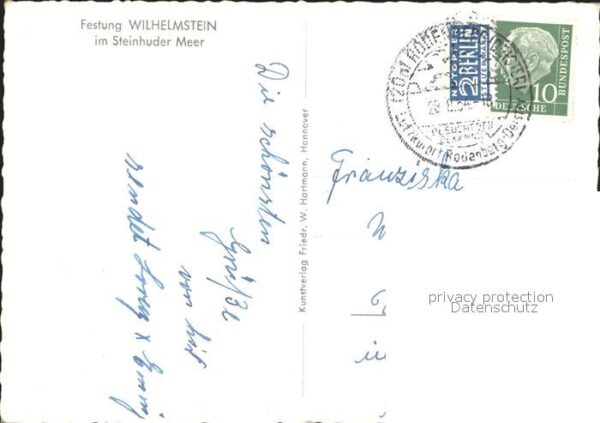 Festung WILHELMSTEIN
im Steinhuder Meer
Die schönsten
Grüße
von hier
sendet
Kunstverlag Friedr. W. Hartmann, Hannover
NOTOPFER
2 BERLIN
STEUERMARKE
10
DEUTSCHE
BUNDESPOST
Luftkurort Rodenberg
Franziska
W
in
privacy protection
Datenschutz